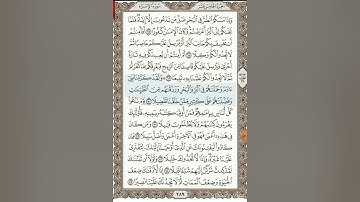 سُورَةُ الإِسْرَاءِ الجزء الخامس عشر
وَإِذَا مَسَّكُمُ ٱلضُّرُّ فِي ٱلْبَحْرِ ضَلَّ مَن تَدْعُونَ إِلَّآ إِيَّاهُ فَلَمَّا
نَجَّىٰكُمْ إِلَى ٱلْبَرِّ أَعْرَضْتُمْ وَكَانَ ٱلْإِنسَٰنُ كَفُورًا ٦٧ أَفَأَمِنتُمْ
أَن يَخْسِفَ بِكُمْ جَانِبَ ٱلْبَرِّ أَوْ يُرْسِلَ عَلَيْكُمْ حَاصِبًا ثُمَّ
لَا تَجِدُوا۟ لَكُمْ وَكِيلًا ٦٨ أَمْ أَمِنتُمْ أَن يُعِيدَكُمْ فِيهِ تَارَةً
أُخْرَىٰ فَيُرْسِلَ عَلَيْكُمْ قَاصِفًا مِّنَ ٱلرِّيحِ فَيُغْرِقَكُم بِمَا كَفَرْتُمْ
ثُمَّ لَا تَجِدُوا۟ لَكُمْ عَلَيْنَا بِهِۦ تَبِيعًا ٦٩ ۞ وَلَقَدْ كَرَّمْنَا بَنِيٓ
ءَادَمَ وَحَمَلْنَٰهُمْ فِي ٱلْبَرِّ وَٱلْبَحْرِ وَرَزَقْنَٰهُم مِّنَ ٱلطَّيِّبَٰتِ
وَفَضَّلْنَٰهُمْ عَلَىٰ كَثِيرٍ مِّمَّنْ خَلَقْنَا تَفْضِيلًا ٧٠ يَوْمَ نَدْعُوا۟
كُلَّ أُنَاسٍۭ بِإِمَٰمِهِمْ فَمَنْ أُوتِيَ كِتَٰبَهُۥ بِيَمِينِهِۦ فَأُو۟لَٰٓئِكَ
يَقْرَءُونَ كِتَٰبَهُمْ وَلَا يُظْلَمُونَ فَتِيلًا ٧١ وَمَن كَانَ
فِي هَٰذِهِۦٓ أَعْمَىٰ فَهُوَ فِي ٱلْءَاخِرَةِ أَعْمَىٰ وَأَضَلُّ سَبِيلًا ٧٢
وَإِن كَادُوا۟ لَيَفْتِنُونَكَ عَنِ ٱلَّذِيٓ أَوْحَيْنَآ إِلَيْكَ لِتَفْتَرِيَ
عَلَيْنَا غَيْرَهُۥ وَإِذًا لَّٱتَّخَذُوكَ خَلِيلًا ٧٣ وَلَوْلَآ أَن ثَبَّتْنَٰكَ
لَقَدْ كِدتَّ تَرْكَنُ إِلَيْهِمْ شَيْـًٔا قَلِيلًا ٧٤ إِذًا لَّأَذَقْنَٰكَ ضِعْفَ
ٱلْحَيَوٰةِ وَضِعْفَ ٱلْمَمَاتِ ثُمَّ لَا تَجِدُ لَكَ عَلَيْنَا نَصِيرًا ٧٥
٢٨٩